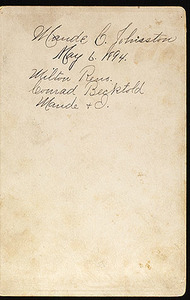 Maude C. Johnston
May 6. 1894.
Milton Rem.
Conrad Becktold
Maude + I.